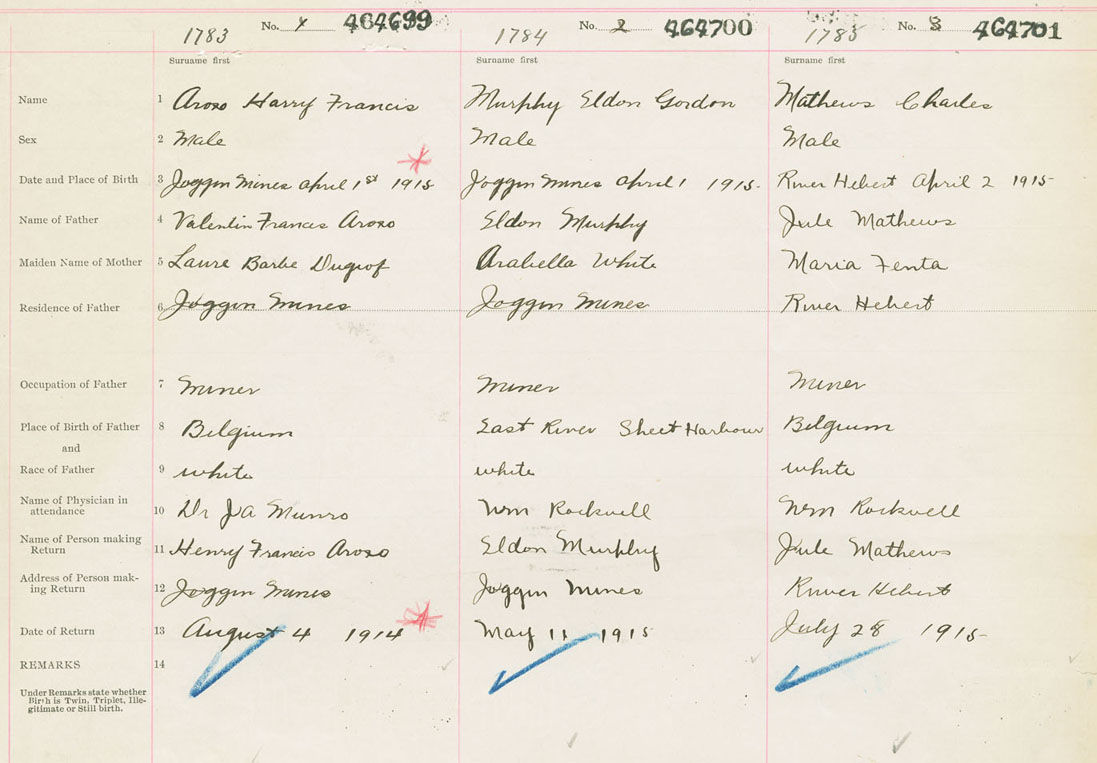 1783 No. 1 464699 1784 No. 2 464700 1785 No. 3 464701
Surname first Surname first Surname first
Name 1 Aroxo Harry Francis Murphy Eldon Gordon Mathews Charles
Sex 2 Male Male Male
Date and Place of Birth 3 Joggin Mines April 1st 1915 Joggin Mines April 1 1915 River Hebert April 2 1915
Name of Father 4 Valentin Francis Aroxo Eldon Murphy Jule Mathews
Maiden Name of Mother 5 Laure Barbe Arabella White Maria Fenta
Residence of Father 6 Joggin Mines Joggin Mines River Hebert
Occupation of Father 7 Miner Miner Miner
Place of Birth of Father 8 Belgium East River Sheet Harbour Belgium
and
Race of Father 9 white white white
Name of Physician in
attendance 10 Dr JA Munro Wm Rockwell Wm Rockwell
Name of Person making
Return 11 Henry Francis Aroxo Eldon Murphy Jule Mathews
Address of Person mak-
ing Return 12 Joggin Mines Joggin Mines River Hebert
Date of Return 13 August 4 1914 May 11 1915 July 28 1915
REMARKS 14
Under Remarks state whether
Birth is Twin, Triplet, Ille-
gitimate or Still birth.